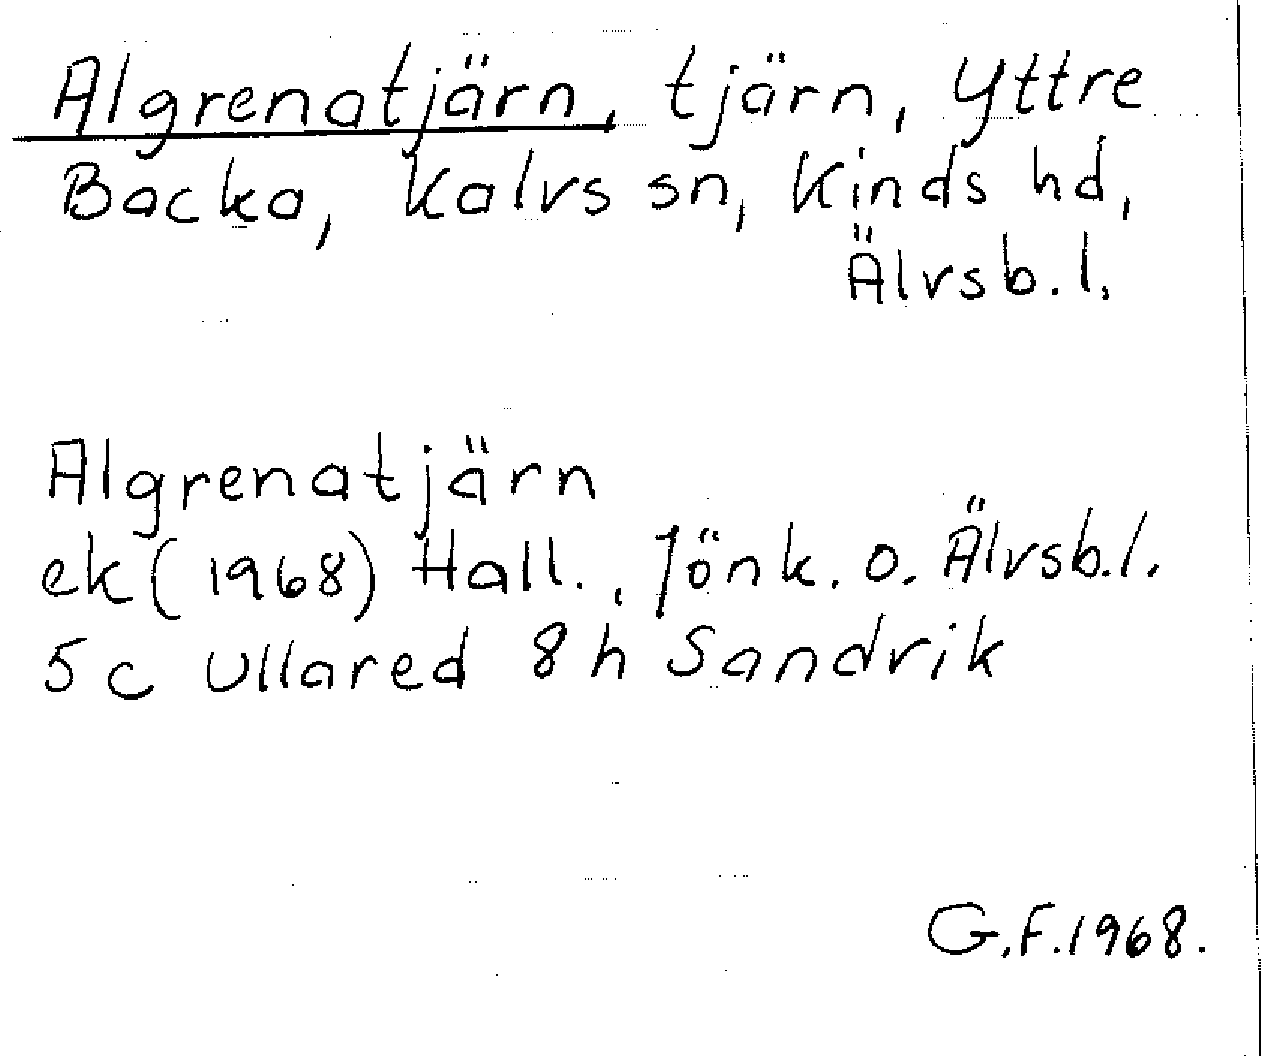 Algrenatjärn, tjärn, Yttre
Backa, Kalvs sn, Kinds hd,
Älvsb.l.
Algrenatjärn
ek (1968) Hall., Jönk. o. Älvsb.l.
5 c Ullared 8 h Sandvik
G.F. 1968.